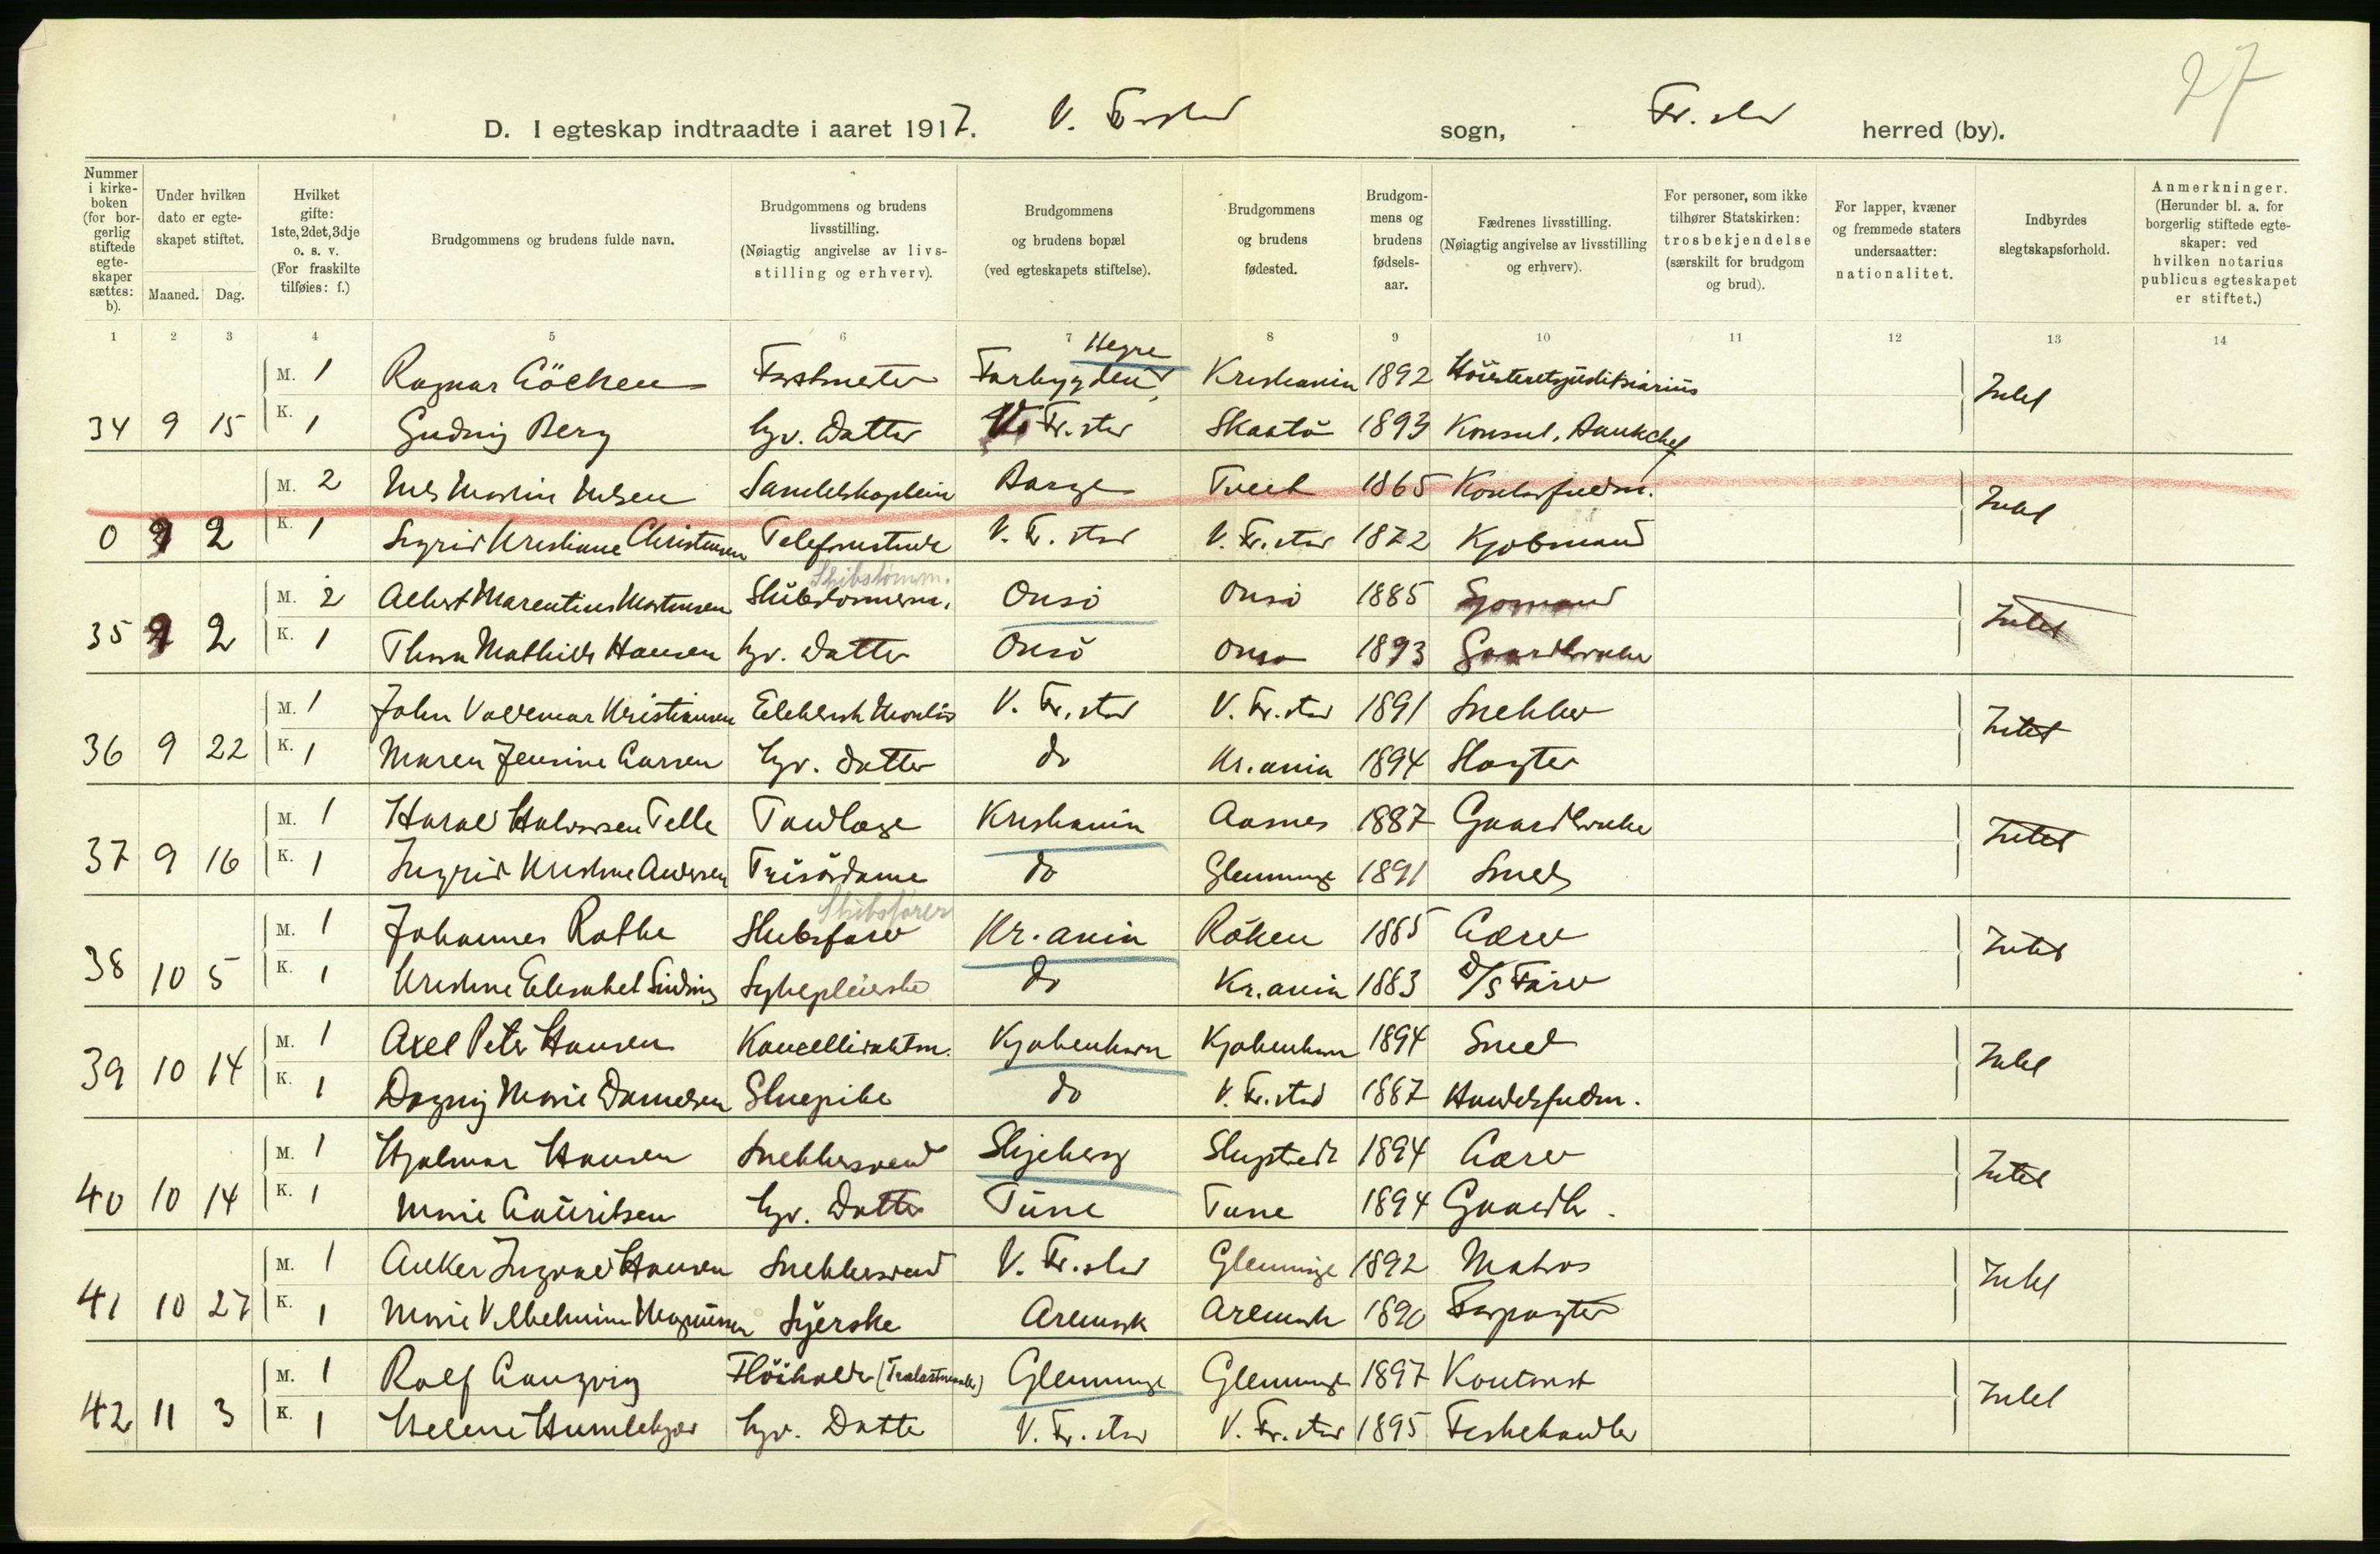 27
D. I egteskap indtraadte i aaret 1917. V. Fr.stad sogn, Fr.stad herred (by).
Nummer i kirke-boken (for bor-gerlig stiftede egte-skaper sættes: b).
Under hvilken dato er egte-skapet stiftet.
Maaned. Dag.
Hvilket gifte: 1ste, 2det, 3dje o. s. v. (For fraskilte tilføies: f.)
Brudgommens og brudens fulde navn.
Brudgommens og brudens livsstilling. (Nøiagtig angivelse av livs-stilling og erhverv).
Brudgommens og brudens bopæl (ved egteskapets stiftelse).
Brudgommens og brudens fødested.
Brudgom-mens og brudens fødsels-aar.
Fædrenes livsstilling. (Nøiagtig angivelse av livsstilling og erhverv).
For personer, som ikke tilhører Statskirken: trosbekjendelse (særskilt for brudgom og brud).
For lapper, kvæner og fremmede staters undersaatter: nationalitet.
Indbyrdes slegtskapsforhold.
Anmerkninger. (Herunder bl. a. for borgerlig stiftede egte-skaper: ved hvilken notarius publicus egteskapet er stiftet.)
1 2 3 4 5 6 7 8 9 10 11 12 13 14
Hegre
M. 1 Ragnar Löchen Forstmester Forbygden, Kristiania 1892 Höiesteretsjustitiarius Intet
34 9 15 K. 1 Gudny Berg hjv. Datter V. Fr.stad Skaatö 1893 Konsul, Bankchef
M. 2 Nils Martin Nilsen Borge Tveit 1865 Intet
0 9 2 K. 1 Sigrid Kristiane Christensen V. Fr.stad V. Fr.stad 1872 Kjøbmand
Skibstömm.
M. 2 Albert Marentius Mortensen Skibstömmerm. Onsö Onsö 1885 Sjømand Intet
35 9 2 K. 1 Thora Mathilde Hansen hjv. Datter Onsö Onsö 1893 Gaardbruker
M. 1 John Valdemar Kristiansen Elektrisk Montör V. Fr.stad V. Fr.stad 1891 Snekker Intet
36 9 22 K. 1 Maren Jensine Larsen hjv. Datter do Kr.ania 1894 Slagter
M. 1 Harald Halvorsen Telle Tandlæge Kristiania Aasnes 1887 Gaardbruker Intet
37 9 16 K. 1 Ingrid Kristine Andersen Frisördame do Glemminge 1891 Smed
Skibsförer
M. 1 Johannes Rothe Skibsförer Kr.ania Röken 1885 Lærer Intet
38 10 5 K. 1 Kristine Elisabet Sinding Sykepleierske do Kr.ania 1883 D/S Förer
M. 1 Axel Peter Hansen Kjøbenhavn Kjøbenhavn 1894 Smed Intet
39 10 14 K. 1 Dagny Marie Danielsen do V. Fr.stad 1887 Handelsfuldm.
M. 1 Hjalmar Hansen Snekkersvend Skjeberg 1894 Lærer Intet
40 10 14 K. 1 Marie Lauritsen hjv. Datter Tune Tune 1894 Gaardbr.
M. 1 Anker Ingvald Hansen Snekkersvend V. Fr.stad Glemminge 1892 Matros Intet
41 10 27 K. 1 Marie Vilhelmine Magnussen Syerske Aremark Aremark 1890 Forpagter
M. 1 Rolf Langvig Glemminge Glemminge 1897 Kontorist Intet
42 11 3 K. 1 Helene Humlekjær hjv. Datter V. Fr.stad V. Fr.stad 1895 Fiskehandler